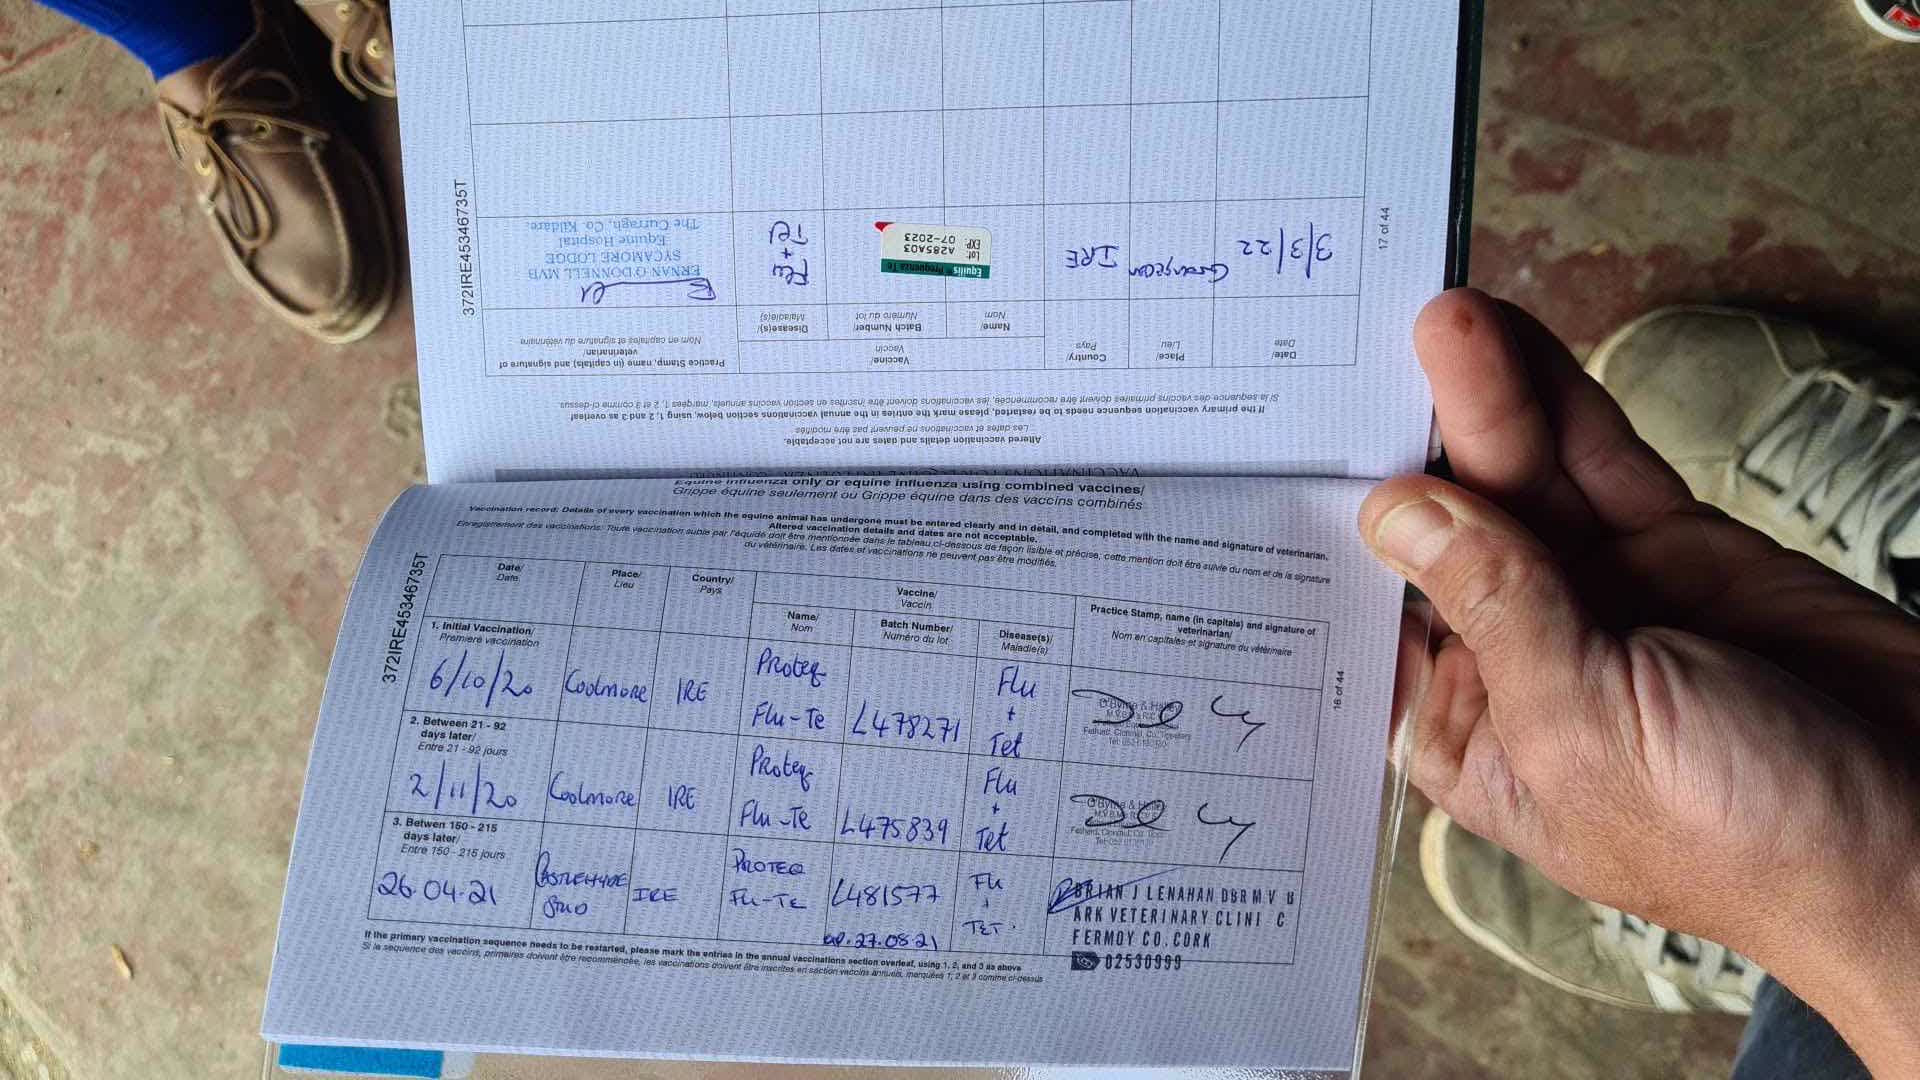 VACCINATIONS
Equine influenza only or equine influenza using combined vaccines/
Grippe équine seulement ou Grippe équine dans des vaccins combinés
Vaccination record: Details of every vaccination which the equine animal has undergone must be entered clearly and in detail, and completed with the name and signature of veterinarian.
Altered vaccination details and dates are not acceptable.
Enregistrement des vaccinations: Toute vaccination subie par l'équidé doit être mentionnée dans le tableau ci-dessous de façon lisible et précise, cette mention doit être suivie du nom et de la signature
du vétérinaire. Les dates et vaccinations ne peuvent pas être modifiés.
372IRE45346735T
Date/ Place/ Country/ Vaccine/ Practice Stamp, name (in capitals) and signature of
Date Lieu Pays Vaccin veterinarian/
Name/ Batch Number/ Disease(s)/ Nom en capitales et signature du vétérinaire
Nom Numéro du lot Maladie(s)
1. Initial Vaccination/
Première vaccination
6/10/20 Coolmore IRE Proteq Flu-Te L478271 Flu + Tet
O'Byrne & Halley
2. Between 21 - 92
days later/
Entre 21 - 92 jours
2/11/20 Coolmore IRE Proteq Flu-Te L475839 Flu + Tet
O'Byrne & Halley
3. Betwen 150 - 215
days later/
Entre 150 - 215 jours
26.04.21 IRE PROTEQ Flu-Te L481577 Flu + TET.
27.08.21
BRIAN J LENAHAN
ARK VETERINARY CLINI C
FERMOY CO. CORK
02530999
If the primary vaccination sequence needs to be restarted, please mark the entries in the annual vaccinations section overleaf, using 1, 2, and 3 as above
Si la sequence des vaccins, primaires doivent être recommencée, les vaccinations doivent être inscrites en section vaccins annuels, marquées 1, 2 et 3 comme ci-dessus
16 of 44
Altered vaccination details and dates are not acceptable.
Les dates et vaccinations ne peuvent pas être modifiés
If the primary vaccination sequence needs to be restarted, please mark the entries in the annual vaccinations section below, using 1, 2 and 3 as overleaf
Si la sequence des vaccins primaires doivent être recommencée, les vaccinations doivent être inscrites en section vaccins annuels, marqées 1, 2 et 3 comme ci-dessus
Date/ Place/ Country/ Vaccine/ Practice Stamp, name (in capitals) and signature of
Date Lieu Pays Vaccin veterinarian/
Name/ Batch Number/ Disease(s)/ Nom en capitales et signature du vétérinaire
Nom Numéro du lot Maladie(s)
3/3/22 IRE
Equilis Prequenza Te
Lot: A285A03
EXP: 07-2023
Flu + Tet
ERNAN O'DONNELL MVB
SYCAMORE LODGE
Equine Hospital
The Curragh, Co. Kildare.
372IRE45346735T
17 of 44